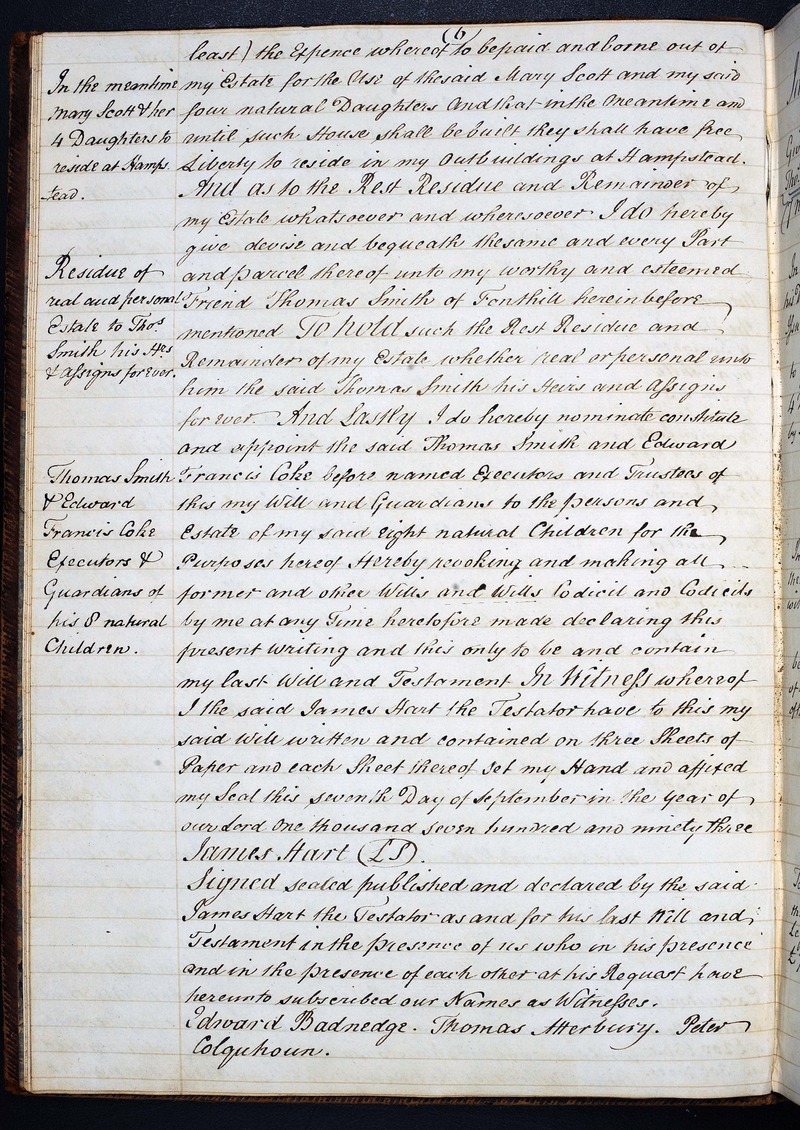 (6
least) the Expence whereof to be paid and borne out of
my Estate for the Use of the said Mary Scott and my said
four natural Daughters And that in the Meantime and
until such House shall be built they shall have free
Liberty to reside in my Outbuildings at Hampstead.
And as to the Rest Residue and Remainder of
my Estate whatsoever and wheresoever I do hereby
give devise and bequeath the same and every Part
and parcel thereof unto my worthy and esteemed
Friend Thomas Smith of Fonthill hereinbefore
mentioned To hold such the Rest Residue and
Remainder of my Estate whether real or personal unto
him the said Thomas Smith his Heirs and Assigns
for ever. And Lastly I do hereby nominate constitute
and appoint the said Thomas Smith and Edward
Francis Coke before named Executors and Trustees of
this my Will and Guardians to the persons and
Estate of my said eight natural Children for the
Purposes hereof Hereby revoking and making all
former and other Wills and Wills Codicil and Codicils
by me at any Time heretofore made declaring this
present writing and this only to be and contain
my last Will and Testament In Witness whereof
I the said James Hart the Testator have to this my
said Will written and contained on three Sheets of
Paper and each Sheet thereof set my Hand and affixed
my Seal this seventh Day of September in the Year of
our Lord One thousand seven hundred and ninety three
James Hart (LS).
Signed sealed published and declared by the said
James Hart the Testator as and for his last Will and
Testament in the presence of us who in his presence
and in the presence of each other at his Request have
hereunto subscribed our Names as Witnesses.
Edward Badnedge. Thomas Atterbury. Peter
Colquhoun.
In the meantime
Mary Scott & her
4 Daughters to
reside at Hamps
tead.
Residue of
real and personal
Estate to Thos
Smith his Hrs
& Assigns for ever.
Thomas Smith
& Edward
Francis Coke
Executors &
Guardians of
his 8 natural
Children.